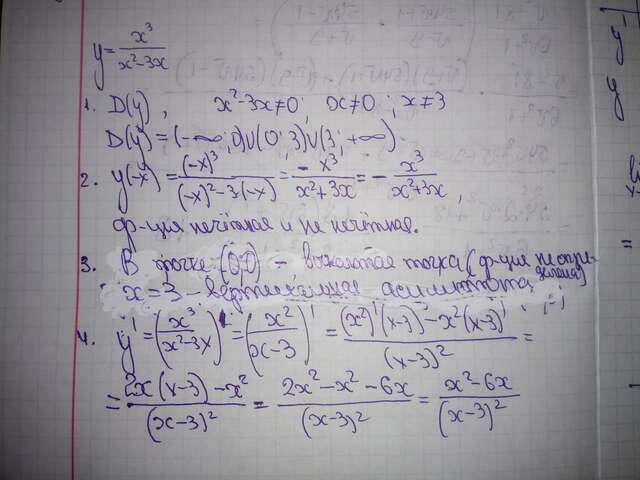 y = x³/(x²-3x)
1. D(y), x²-3x≠0; x≠0; x≠3
D(y) = (-∞; 0)∪(0; 3)∪(3; +∞).
2. y(-x) = (-x)³/((-x)²-3·(-x)) = -x³/(x²+3x) = -x³/(x²+3x),
ф-ция нечётная и не нечётная.
3. В точке (0;0) - выколотая точка (ф-ция не опре-
делена)
x = 3 - вертикальная асимптота
4. y' = (x³/(x²-3x))' = (x²/(x-3))' = ((x²)'(x-3) - x²(x-3)')/(x-3)² =
= (2x(x-3) - x²)/(x-3)² = (2x²-x²-6x)/(x-3)² = (x²-6x)/(x-3)²